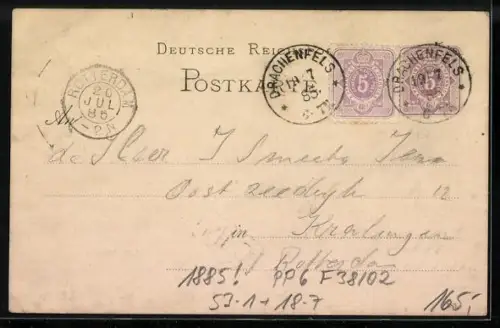 DEUTSCHE REICHS
POSTKARTE
DRACHENFELS
19 7
85
6-7N
5
DRACHENFELS
19 7
5
ROTTERDAM
20
JUL
85
An
de Heer J Smeets
Oost zeedijk 12
in Kralingen
Rotterdam
1885! PP6 F38/02
53-1+18-7
165,-